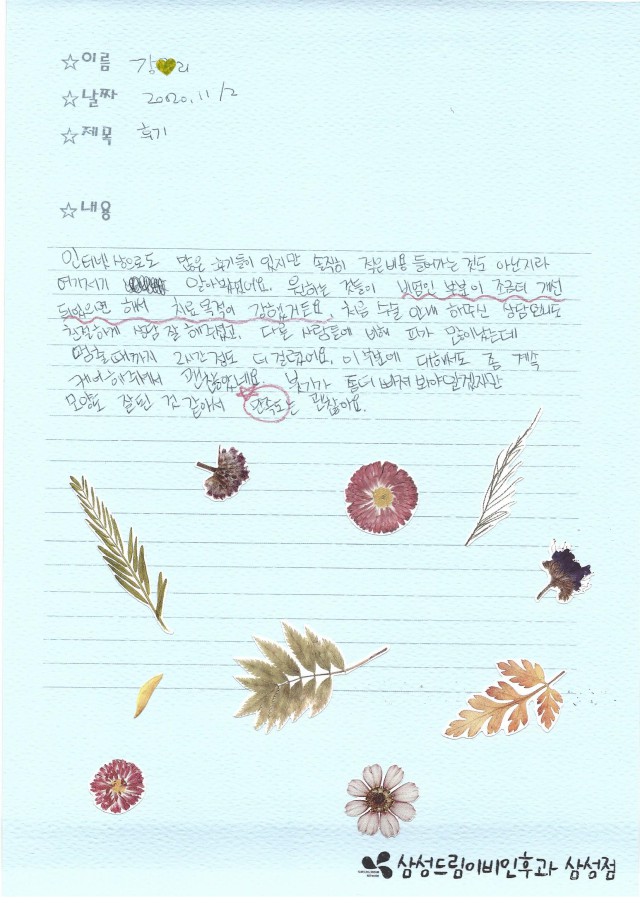 ☆이름 강♥리
☆날짜 2020. 11/2
☆제목 후기
☆내용
인터넷 상으로도 많은 후기들이 있지만 솔직히 적은비용 들어가는 것도 아닌지라
여기저기 알아봤었어요. 원하는 것들이 비염인 부분이 조금더 개선
되었으면 해서 치료목적이 강했었거든요. 처음 수술 안내 해주신 상담언니도
친절하게 상담 잘 해주셨고, 다른 사람들에 비해 피가 많이났는데
멈출때까지 2시간정도 더 걸렸어요. 이부분에 대해서도 좀 계속
케어해주셔서 괜찮았네요 붓기가 좀더 빠져봐야알겠지만
모양도 잘된 것 같아서 만족도는 괜찮아요.
삼성드림이비인후과 삼성점